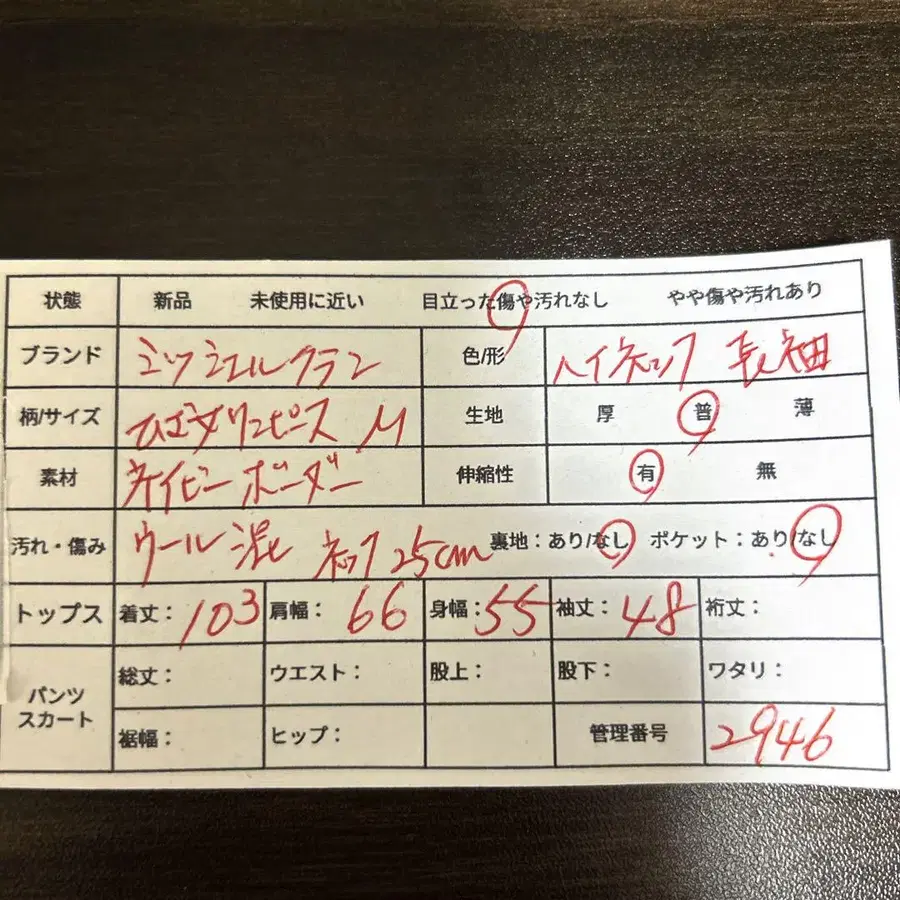 状態 新品 未使用に近い 目立った傷や汚れなし やや傷や汚れあり
ブランド ミッシェルクラン 色/形 ハイネック 長袖
柄/サイズ ひざ丈ワンピース M 生地 厚 普 薄
素材 ネイビーボーダー 伸縮性 有 無
汚れ・傷み ウール混 ネック25cm 裏地：あり/なし ポケット：あり/なし
トップス 着丈：103 肩幅：66 身幅：55 袖丈：48 裄丈：
パンツ スカート 総丈： ウエスト： 股上： 股下： ワタリ：
裾幅： ヒップ： 管理番号 2946